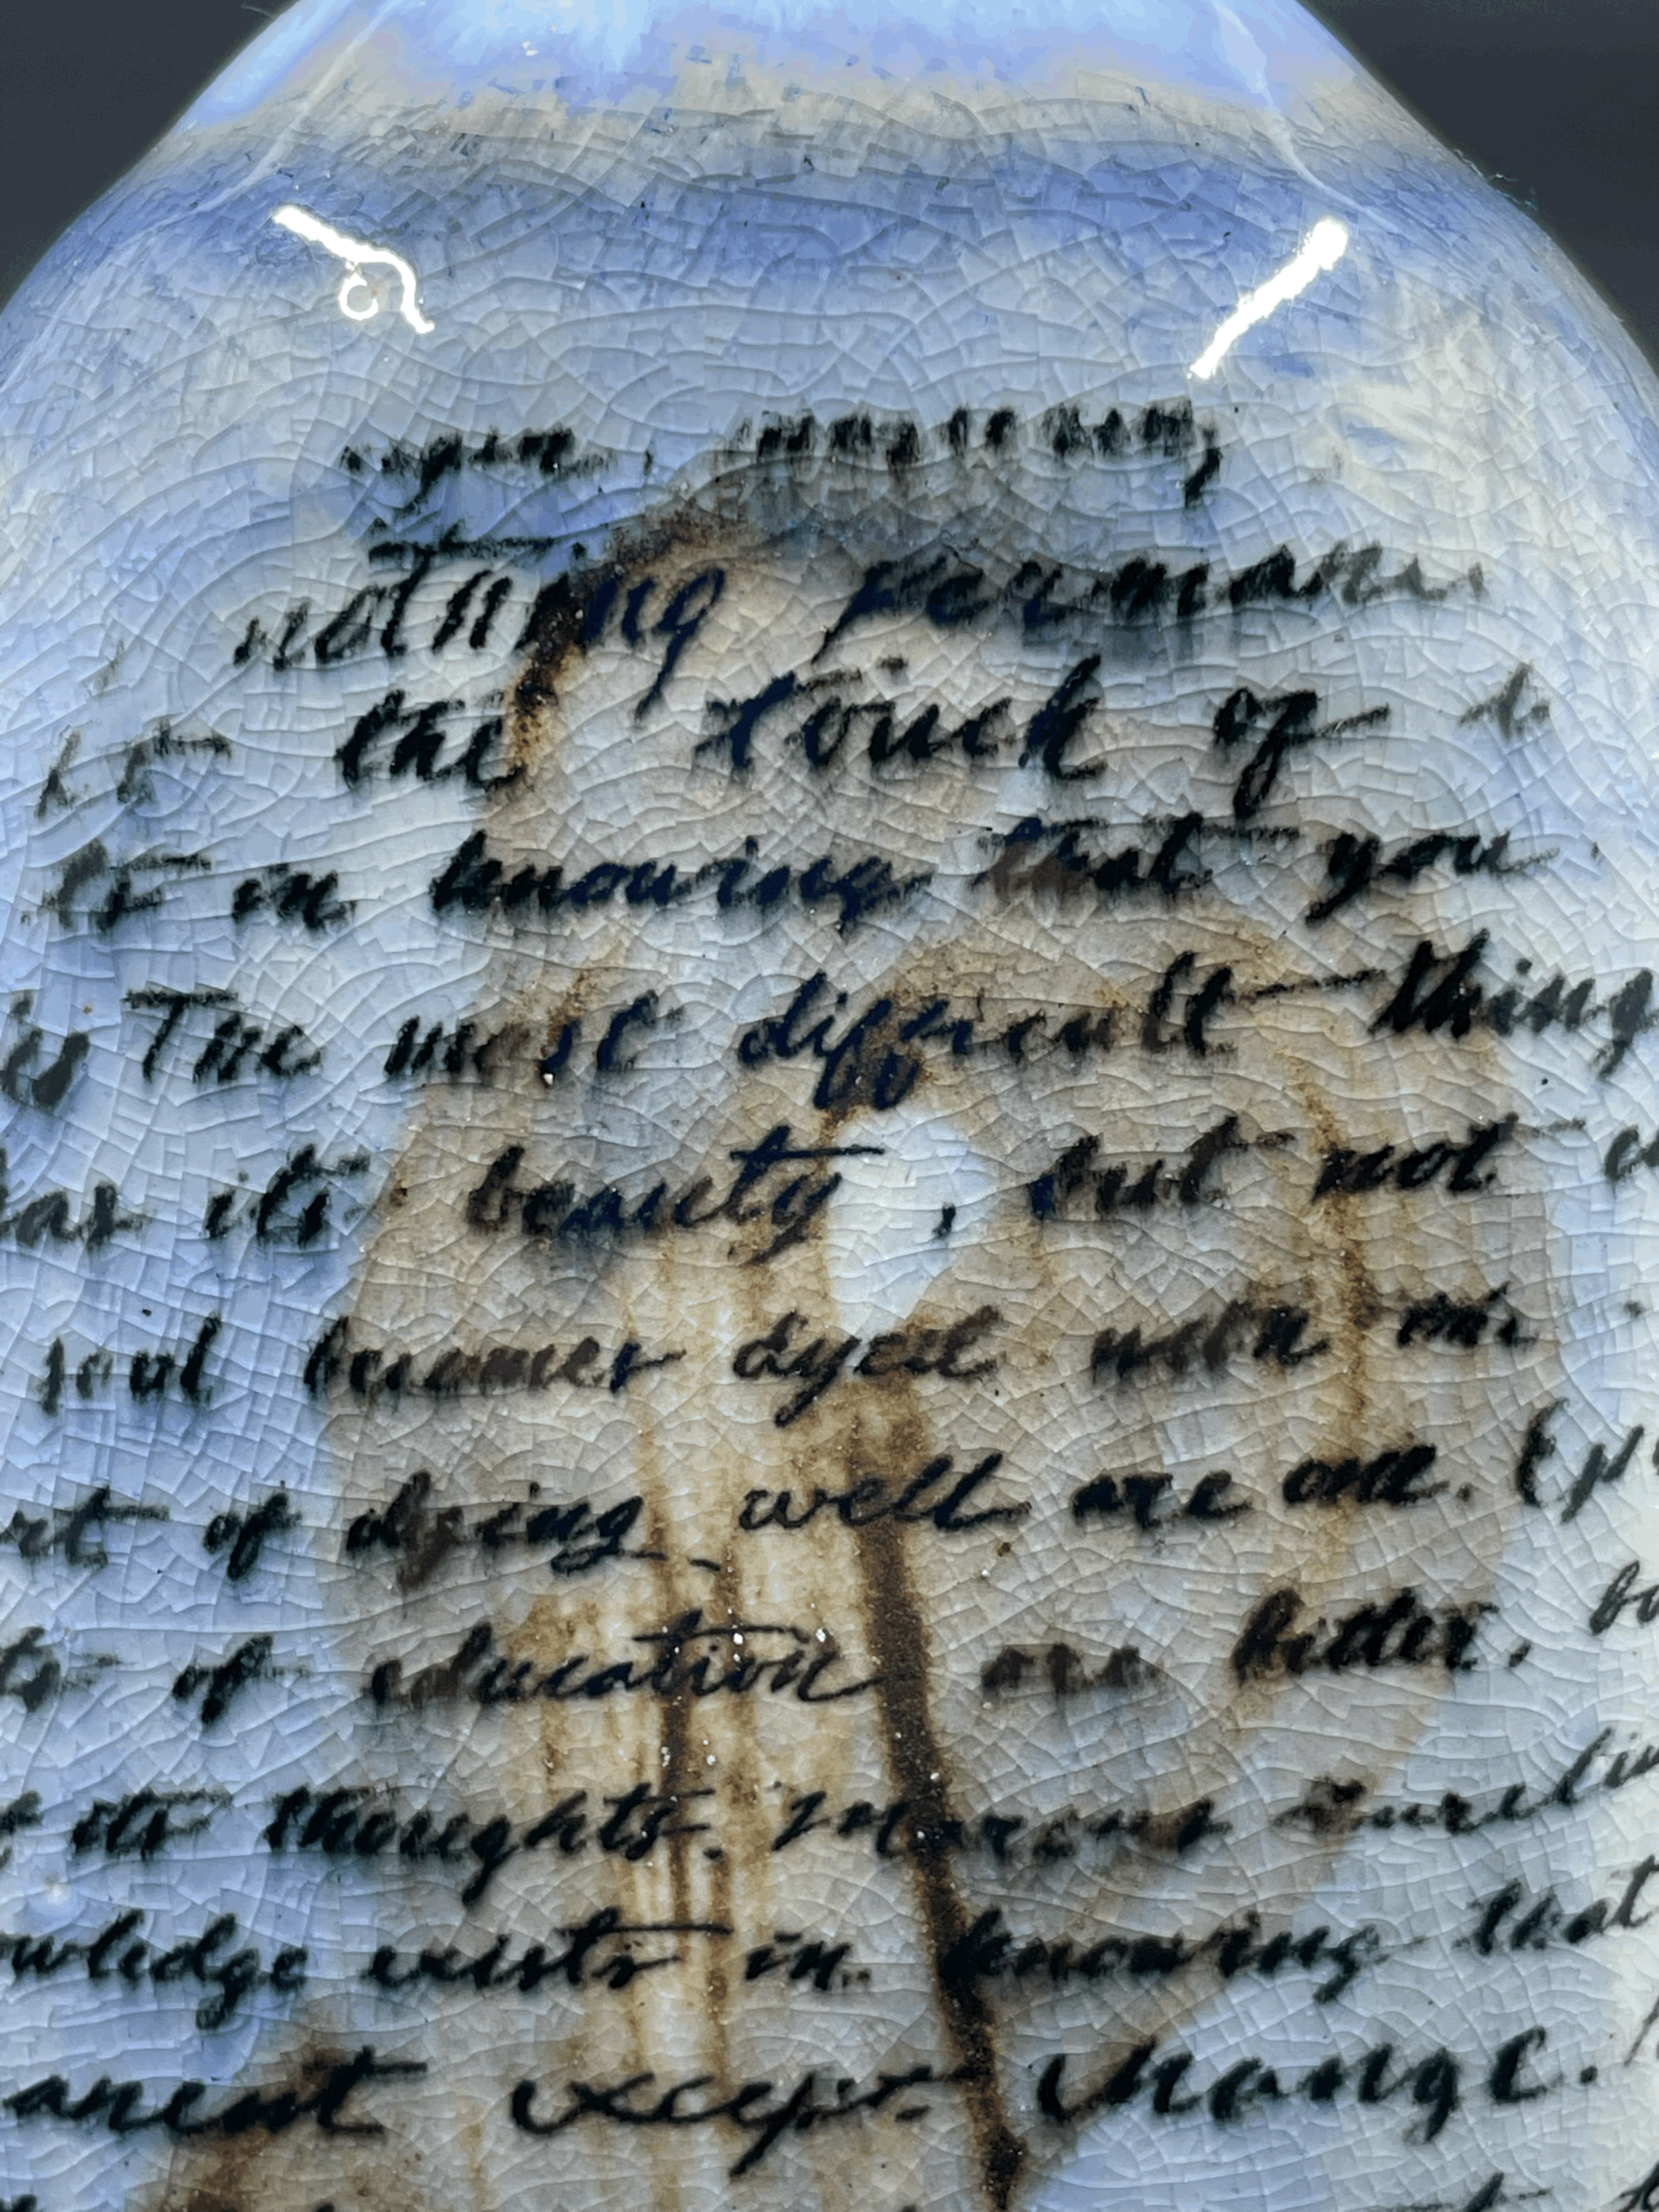 nothing
the touch of
in knowing that you
The most difficult thing
its beauty, but not
soul becomes dyed with
of dying well are one.
of education are bitter,
its thoughts. Marcus Aureliu
wledge exists in knowing that
anent except change.